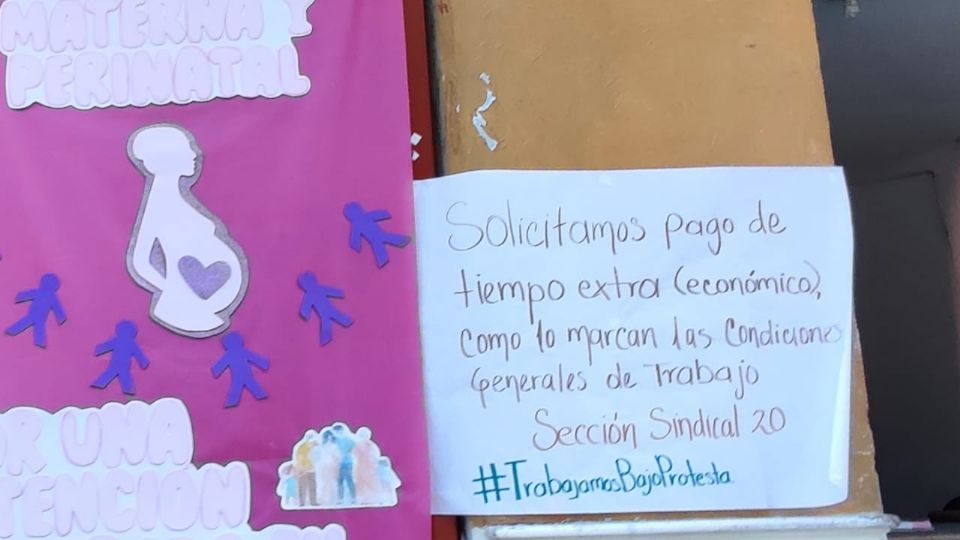 MATERNA Y
PERINATAL
OR UNA
TENCIÓN
Solicitamos pago de
tiempo extra (económico),
como lo marcan las Condiciones
Generales de Trabajo
Sección Sindical 20
#TrabajamosBajoProtesta